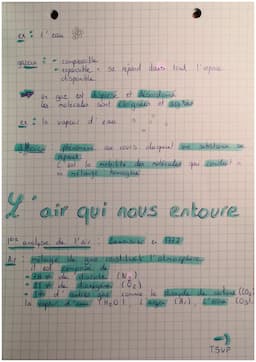 ex : l'eau
gazeux : - compressible
- expansible - se répand dans tout l'espace
disponible.
un gaz est dispersé et désordonné
les molécules sont
ex : la vapeur d'eau
: phénomène au cours duquel une substance se
répand.
C'est la mobilité des molécules qui conduit à
un mélange homogène
L'air qui nous entoure
1ère analyse de l'air : Lavoisier en
Air : mélange de gaz constituant l'atmosphère
il est composé de :
• 78 % de diazote (N2)
• 21 % de dioxygène (O2)
• 1 % d'autres gaz comme le dioxyde de carbone (CO2)
la vapeur d'eau (H2O), l'argon (Ar), l'ozone (O3)
TSVP